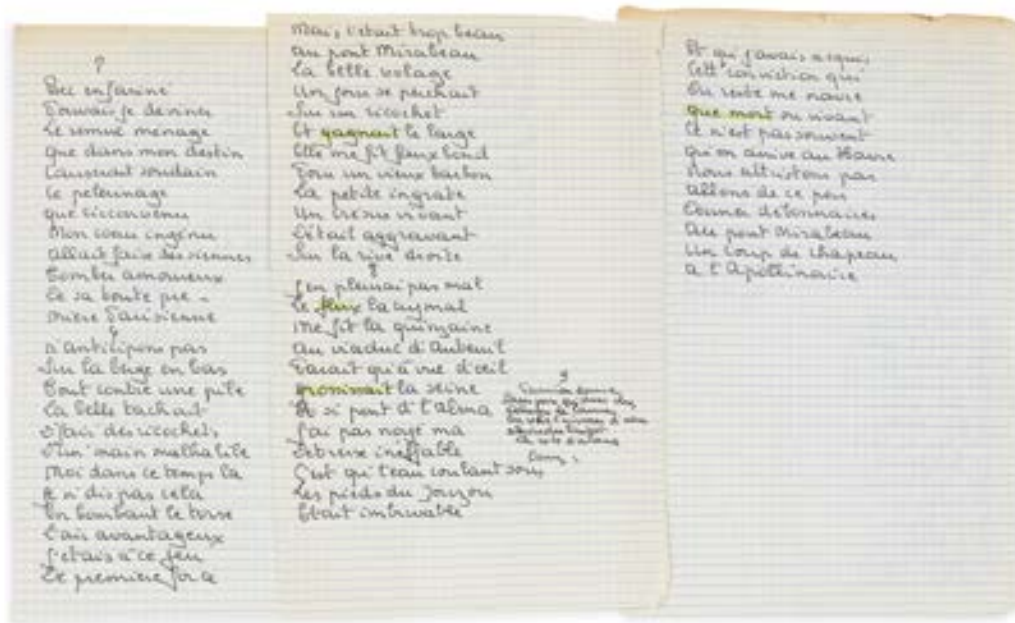 Bec enfariné
Pouvais-je deviner
Le remue ménage
Que dans mon destin
Causerait soudain
Ce pelerinage
Que circonvenu
Mon cœur ingénu
Allait faire des siennes
Tomber amoureux
De sa toute pre -
mière Parisienne
N'anticipons pas
Sur la berge en bas
Tout contre une pile
La belle tachait
D'fair des ricochets
D'un' main malhabile
Moi dans ce temps la
Je n'dis pas cela
En bombant le torse
L'air avantageux
J'étais à ce jeu
De première force
Mais c'était trop beau
au pont Mirabeau
La belle volage
Un jour se perchait
Sur un ricochet
Et gagnait le large
Elle me fit faux bond
Pour un vieux barbon
La petite ingrate
Un crésus vivant
Détail aggravant
Sur la rive droite
J'en pleurai pas mal
Le flux lacrymal
Me fit la quinzaine
Au viaduc d'Auteuil
Parait qu'à vue d'œil
Grossissait la Seine
Et si pont d'l'Alma
J'ai pas noyé ma
Détresse ineffable
C'est qu'l'eau coulant sous
Les pieds du Zouzou
Etait imbuvable
Et qu'j'avais acquis
Cett' conviction qui
Du reste me navre
Que mort ou vivant
Ce n'est pas souvent
Qu'on arrive au Havre
Nous attristons pas
Allons de ce pas
Donner débonnaires
Au pont Mirabeau
Un coup de chapeau
A l'Apollinaire